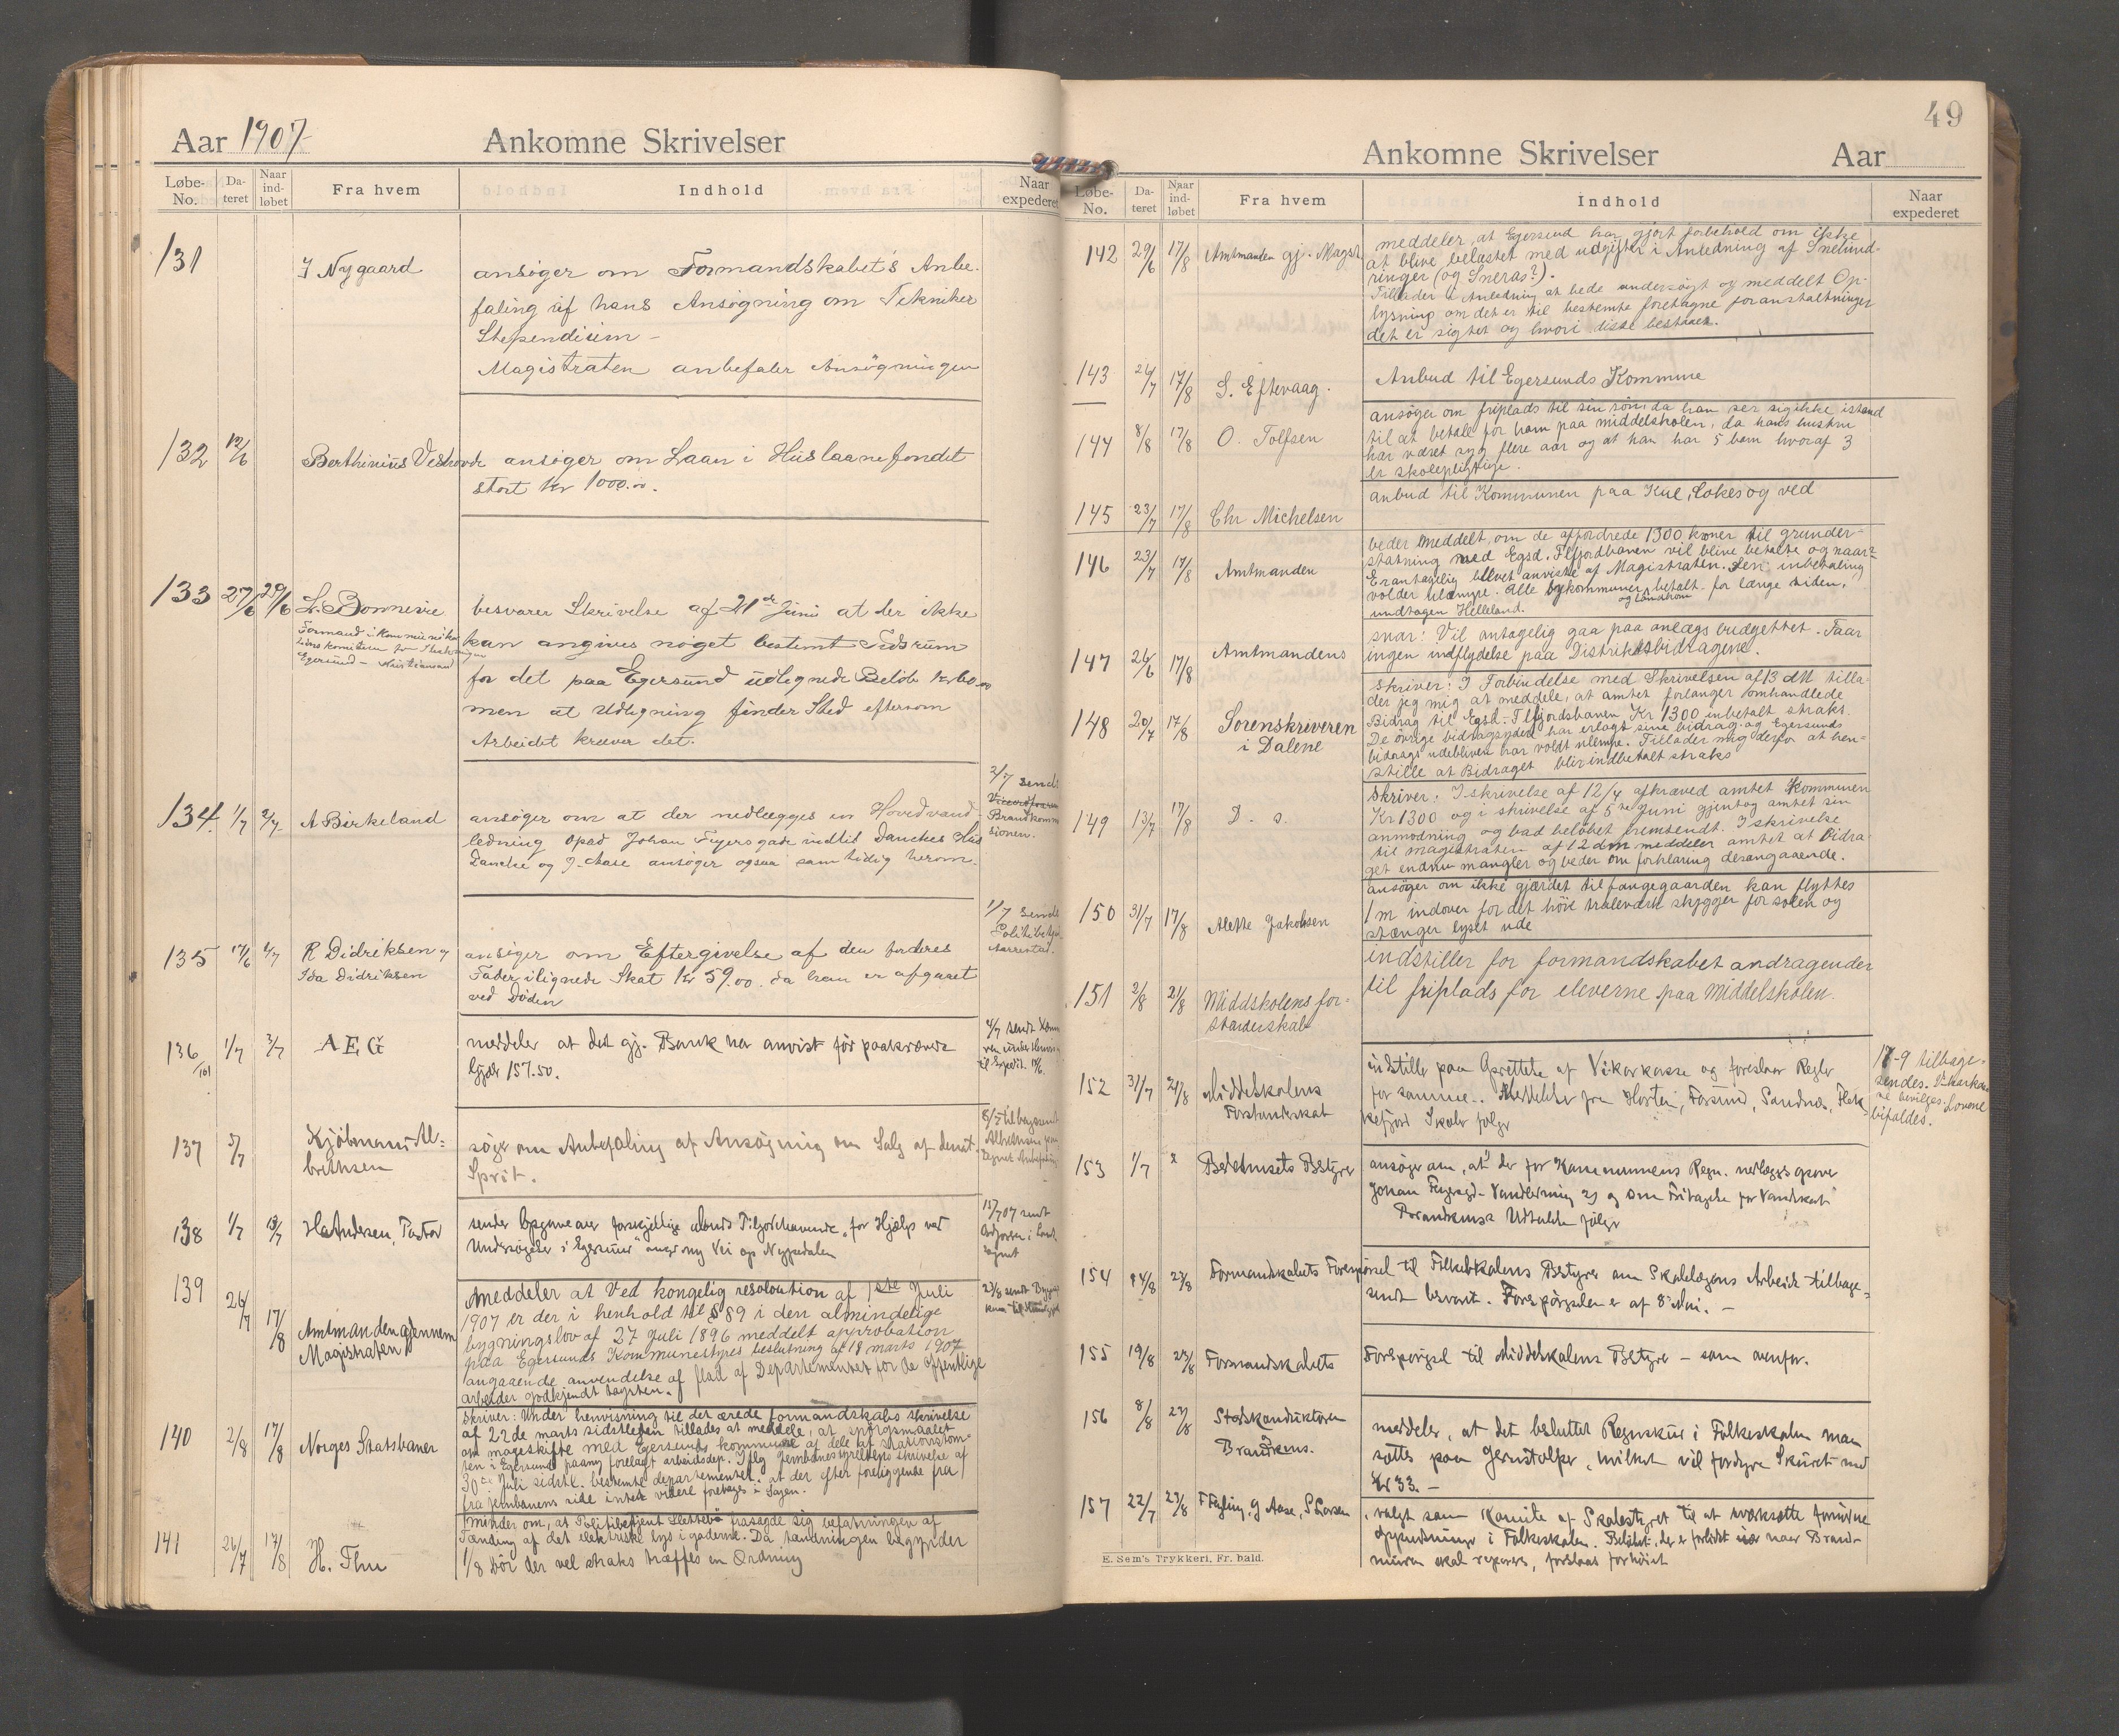 Aar 1907-
Ankomne Skrivelser
Løbe-No. Da-teret Naar ind-løbet Fra hvem Indhold Naar expederet
131 J Nygaard ansøger om Formandskabet's Anbe-
faling af hans Ansøgning om Tekniker
Stependium -
Magistraten anbefaler Ansøgningen
132 12/6 Berthinius ansøger om Laan i Huslaanefondet
stort Kr 1000.00.
133 27/6 29/6 L. Bonnevie besvarer Skrivelse af 21de Juni at der ikke
Formand i
Egersund - Kristiansand
kan angives noget bestemt Tidsrum
for det paa Egersund udlignede Beløb
men at Udligning finder Sted eftersom
Arbeidet kræver det.
134. 1/7 2/7 A Birkeland ansøger om at der nedlægges en Hovedvand-
ledning opad Johan Feyersgade indtil Danckes Hus
Dancke og J. Aase ansøger ogsaa samtidig herom.
2/7 sendt
Brandkomm
sionen.
135 4/7 R Didriksen og
Ida Didriksen
ansøger om Eftergivelse af den
Fader ilignede Skat Kr 59.00. da han er afgaaet
ved Døden
1/7 sendt
136/101 1/7 3/7 AEG meddeler at det gj. Bank har anvist før paakrævede
157.50.
4/7 sendt
137 3/7 Kjøbmand Al-
brethsen
søger om Anbefaling af Ansøgning om Salg af denat.
Sprit.
138 1/7 13/7 H Andersen, Pastor sender Opgave over forskjellige
Undersøgelse i Egersund" vei op Nygedalen
15/7 07 sendt
139 26/7 17/8 Amtmanden gjennem
Magistraten
Meddeler at Ved kongelig resolution af 1ste Juli
1907 er der i henhold til § 89 i den almindelige
bygningslov af 27 Juli 1896 meddelt approbation
paa Egersunds Kommunestyres beslutning af 18 marts 1907
angaaende anvendelse af flad af Departementet for de offentlige
arbeider godkjendt tagsten.
23/8 sendt
140 2/8 17/8 Norges Statsbaner Skriver: Under henvisning til det ærede formandskabs skrivelse
af 22de marts sidstleden tillades at meddele, at spørgsmaalet
om mageskifte med Egersunds kommune af dele af stationstom-
ten i Egersund paany forelagt arbeidsdep. Ifølg Jernbanestyrelsens skrivelse af
30te Juli sidstl. bestemte departementet, at der efter foreliggende fra
fra jernbanens side intet videre foretages i Sagen.
141 26/7 17/8 H. Thu minder om, at Politibetjent Slettebø frasagde sig befatningen af
Tænding af det elektriske lys i gaderne. Da tændningen begynder
1/8 bør der vel straks træffes en Ordning
49
Ankomne Skrivelser
Aar
Løbe-No. Da-teret Naar ind-løbet Fra hvem Indhold Naar expederet
142 29/6 17/8 Amtmanden gj. Magst. meddeler, at Egersund har gjort forbehold om ikke
at blive belastet med udgifter i Anledning af Sneind-
ringer (og Sneras?).
Tillader i Anledning at bede undersøgt og meddelt Op-
lysning om det er til bestemte foretagne foranstaltninger
det er sigtet og hvori disse bestaaer.
143 24/7 17/8 S. Eftevaag. Anbud til Egersunds Kommune
144 8/8 17/8 O. Tolfsen ansøger om friplads til sin søn, da han ser sig ikke istand
til at betale for ham paa middelskolen, da hans hustru
har været syg flere aar og at han har 5 barn hvoraf 3
er skolepligtige.
145 23/7 17/8 Chr Michelsen anbud til Kommunen paa Kul, Cokes og ved
146 23/7 17/8 Amtmanden beder meddelt, om de affordrede 1300 kroner til grunder-
statning med Egsd. Flfjordbanen vil blive betalte og naar?
Er antagelig blevet anviste af Magistraten. Sen inbetaling
volder ulempe. Alle bykommuner betalt for længe siden,
undtagen Helleland.
147 26/6 17/8 Amtmandens svar: Vil antagelig gaa paa anlægsbudgettet. Faar
ingen indflydelse paa Distriktsbidragene.
148 20/7 17/8 Sorenskriveren
i Dalene
Skriver: I Forbindelse med Skrivelsen af 13 dM tilla-
der jeg mig at meddele, at amtet forlanger omhandlede
Bidrag til Egsd-Flfjordsbanen Kr 1300 inbetalt straks.
De øvrige bidragsydere har erlagt sine bidrag og Egersunds
bidrags udebliven har voldt ulempe. Tillader mig derfor at hen-
stille at Bidraget blir indbetalt straks
149 13/7 17/8 D. s. Skriver: I skrivelse af 12/4 afkræved amtet Kommunen
Kr 1300 og i skrivelse af 5te Juni gjentog amtet sin
anmodning og bad beløbet fremsendt. I skrivelse
til magistraten af 12 dm meddeler amtet at Bidra-
get endnu mangler og beder om forklaring desangaaende.
150 31/7 17/8 Alette Jakobsen ansøger om ikke gjærdet til fangegaarden kan flyttes
1 m indover for det høie træværk skygger for solen og
stænger lyset ude
151 2/8 21/8 Middskolens for-
standerskab
indstiller for formandskabet andragender
til friplads for eleverne paa Middelskolen.
152 31/7 21/8 Middelskolens
Forstanderskab
indstiller paa Oprettelse af Vikarkasse og foreslaar Regler
for samme. Meddelelse fra Horten, Farsund, Sandnes, Flek-
kefjord Skoler følger
17-9 tilbage-
sendes. Vikarkas-
se bevilges. Lovene
bifaldes.
153 1/7 Bedehusets Bestyrer ansøger om, at der for Kommunens Regn. nedlægges
Johan Feyersgd. Vandledning og om Fritagelse for Vandskat
Brandkoms Udtalelse følger
154 14/8 23/8 Formandskabets Forespørsel til Folkeskolens Bestyrer om Skolelægens Arbeide tilbage-
sendt besvaret. Forespørgselen er af 8de Juni. -
155 19/8 23/8 Formandskabets Forespørgsel til Middelskolens Bestyrer - som ovenfor.
156 8/8 23/8 Stadskonduktøren
Brandkoms.
meddeler, at det besluttet Regnskur i Folkeskolen maa
sættes paa Jernstolper, hvilket vil fordyre Skuret med
Kr 33. -
157 22/7 23/8 F Feyling, J Aase, S Larsen valgt som Komite af Skolestyret til at iværksætte fornødne
Oppudsninger i Folkeskolen. Beløbet, der er forlidet naar Brand-
muren skal repareres, forslaas forhøiet
E. Sem's Trykkeri, Fr. hald.